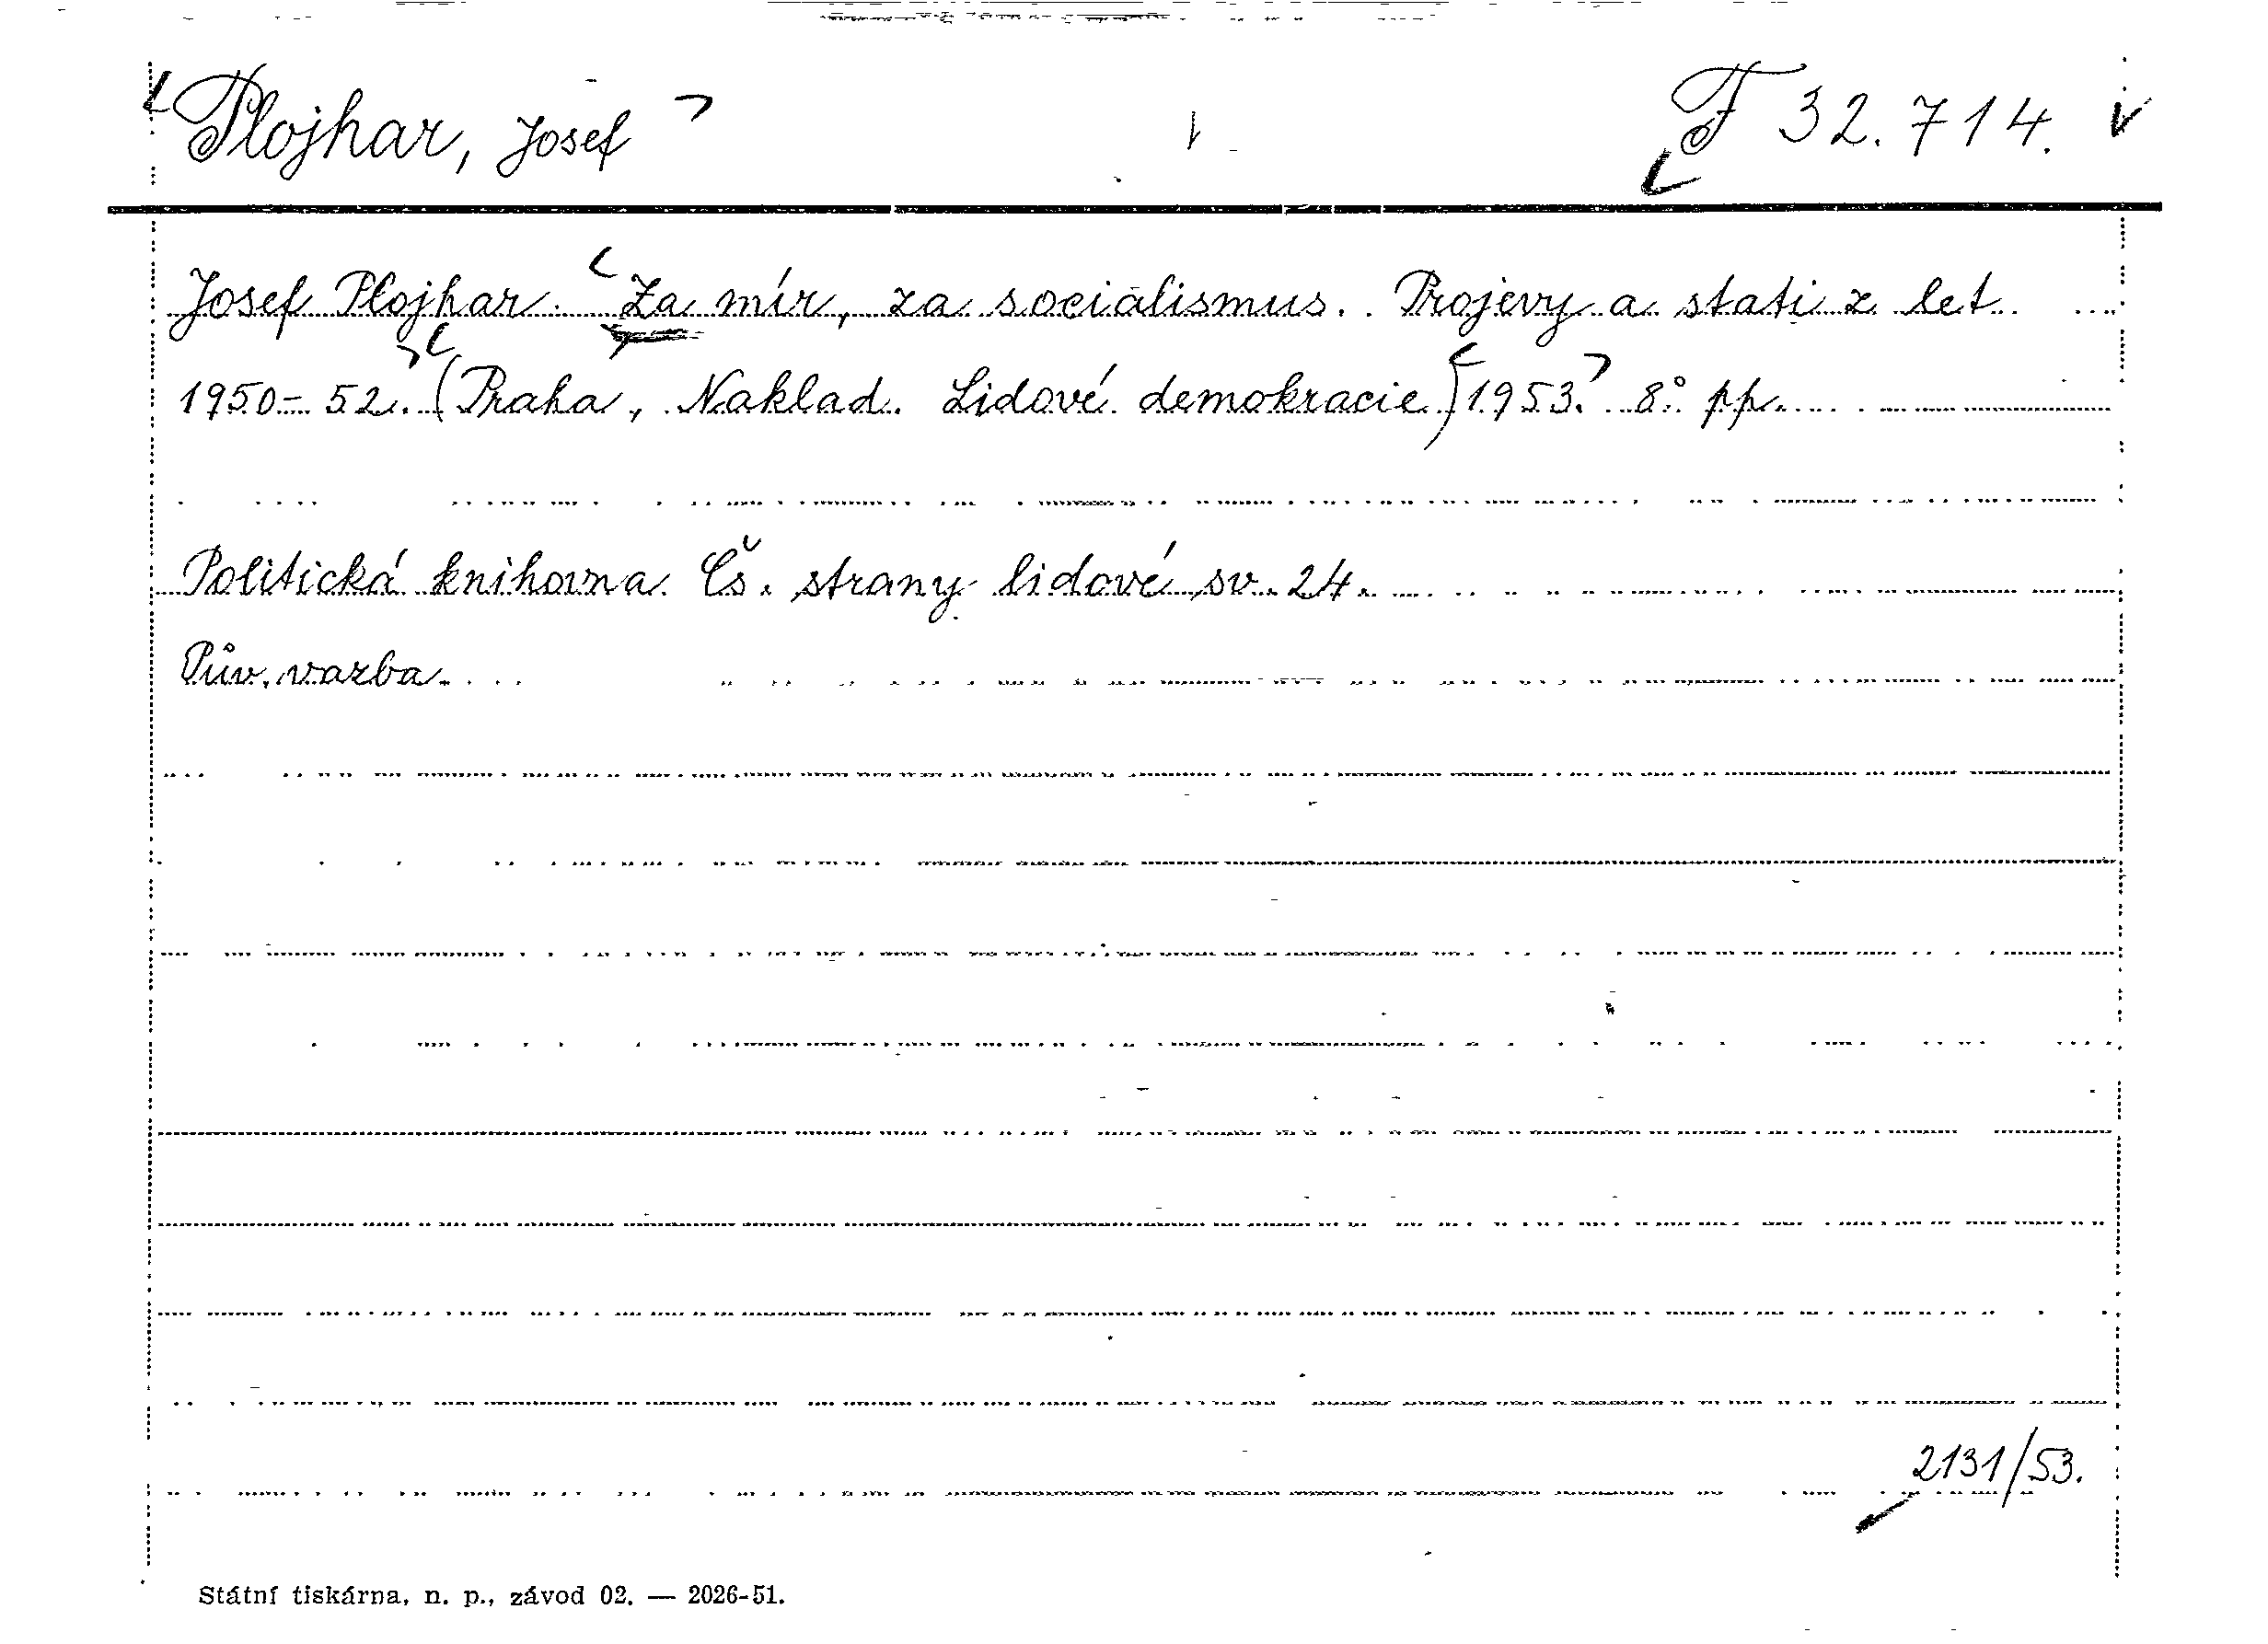 Plojhar, Josef
F 32.714.
Josef Plojhar. Za mír, za socialismus. Projevy a stati z let
1950-52. (Praha, Naklad. Lidové demokracie) 1953. 8° pp.
Politická knihovna Čs. strany lidové sv. 24.
Pův. vazba.
2131/53.
Státní tiskárna, n. p., závod 02. — 2026-51.